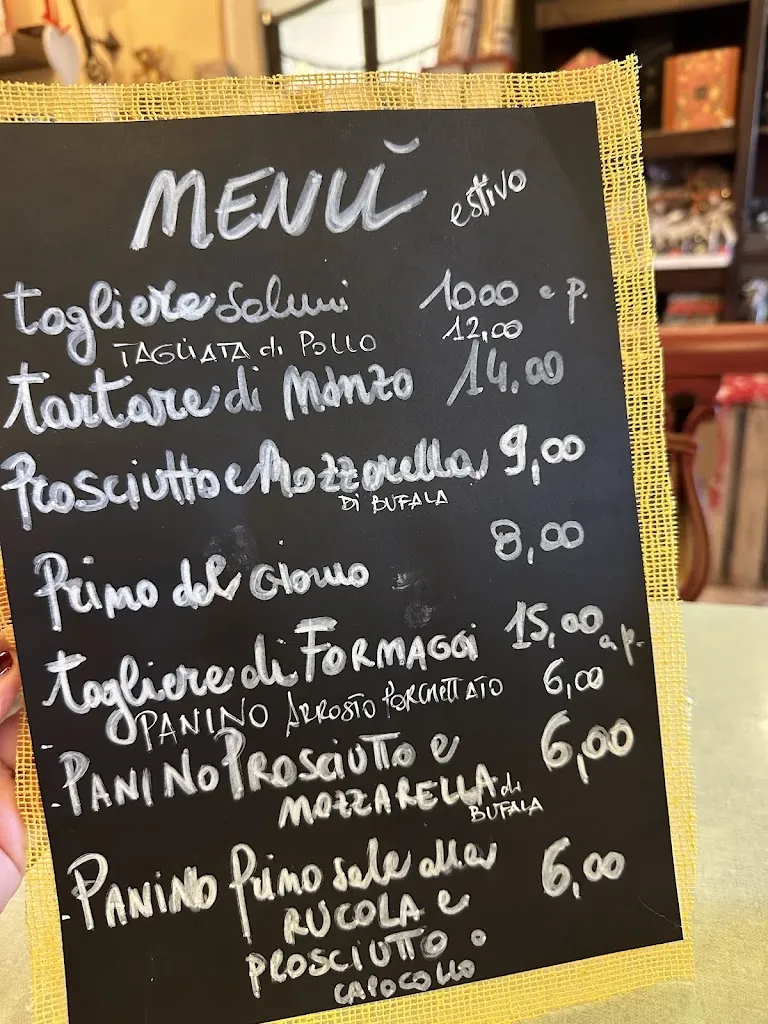 MENÙ estivo
tagliere Salumi 1000 a p.
TAGLIATA di POLLO 12,00
tartare di Manzo 14,00
Prosciutto e Mozzarella 9,00
DI BUFALA
Primo del Giorno 8,00
tagliere di FORMAGGI 15,00 a p.
PANINO ARROSTO PORCHETTATO 6,00
- PANINO PROSCIUTTO e 6,00
MOZZARELLA di
BUFALA
- PANINO Primo sale alla 6,00
RUCOLA e
PROSCIUTTO o
CAPOCOLLO